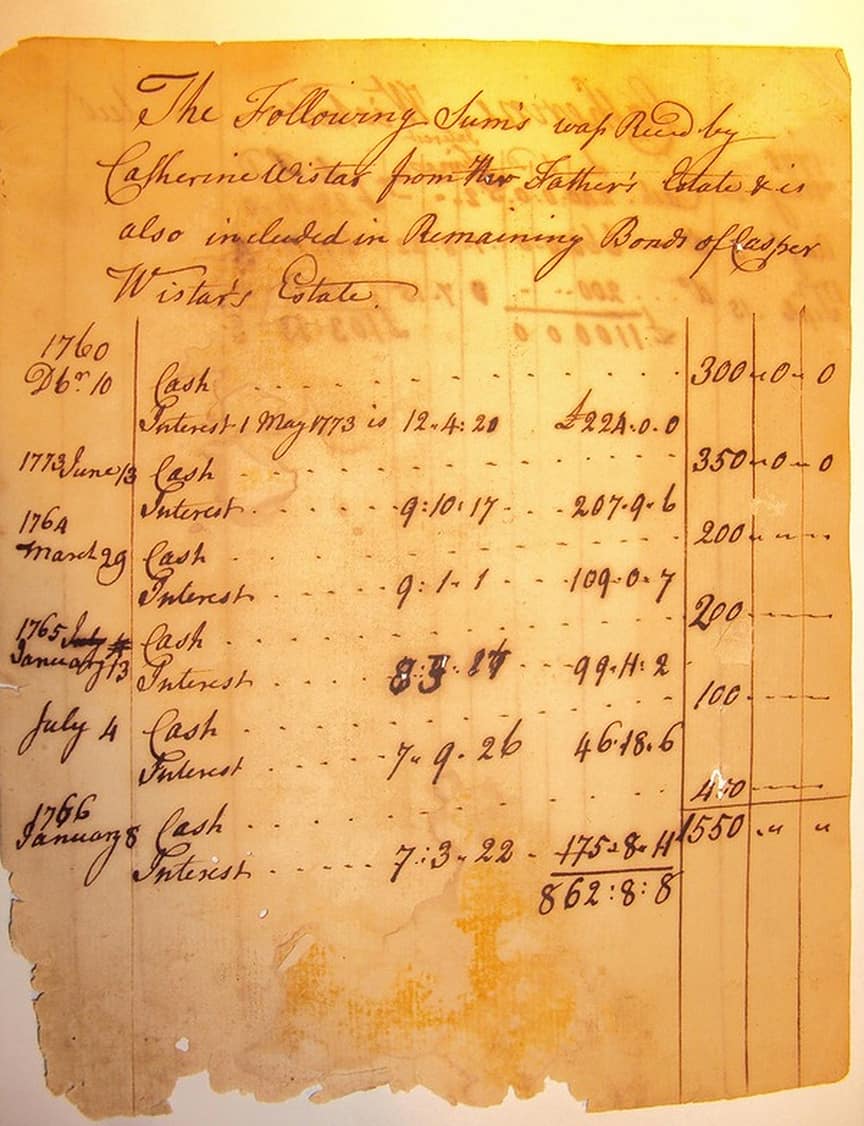 The Following Sum's was Recd by
Catherine Wistar from Her Father's Estate & is
also included in Remaining Bonds of Casper
Wistar's Estate.
1760
Dbr. 10 Cash 300 " 0 " 0
Interest 1 May 1773 is 12 " 4 : 20 £224 . 0 . 0
1773 June 13 Cash 350 " 0 " 0
Interest 9 : 10 : 17 207 . 9 . 6
1764
March 29 Cash 200
Interest 9 : 1 . 1 109 . 0 . 7
1765
January 13 Cash 200
Interest 99 . 11 : 2
July 4 Cash 100
Interest 7 " 9 . 26 46 . 18 . 6
1766
January 8 Cash 400
Interest 7 : 3 " 22 175 . 8 . 11 1550 " "
862 : 8 : 8